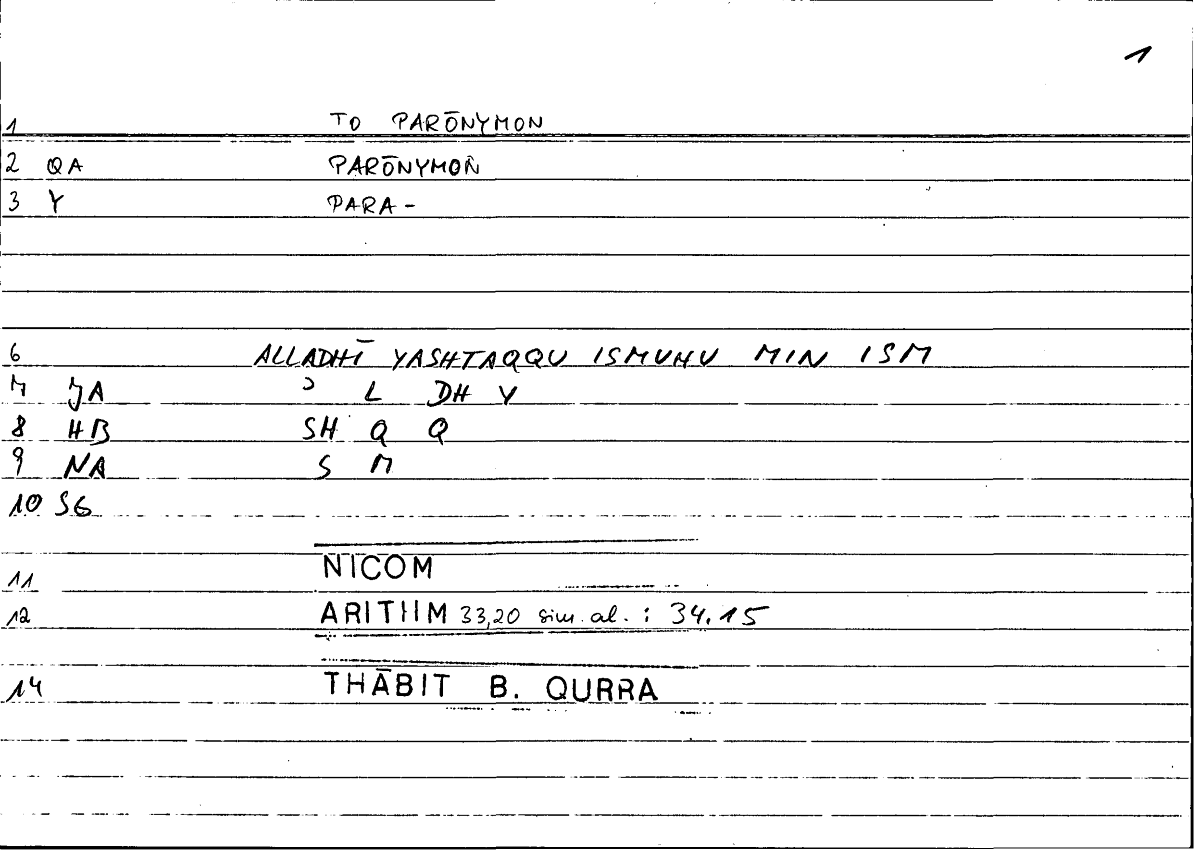 1
1 TO PARŌNYMON
2 QA PARŌNYMON
3 Y PARA -
6 ALLADHĪ YASHTAQQU ISMUHU MIN ISM
7 JA ʾ L DH Y
8 HB SH Q Q
9 NA S M
10 SG
11 NICOM
12 ARITHM 33,20 sim. al. : 34.15
14 THĀBIT B. QURRA